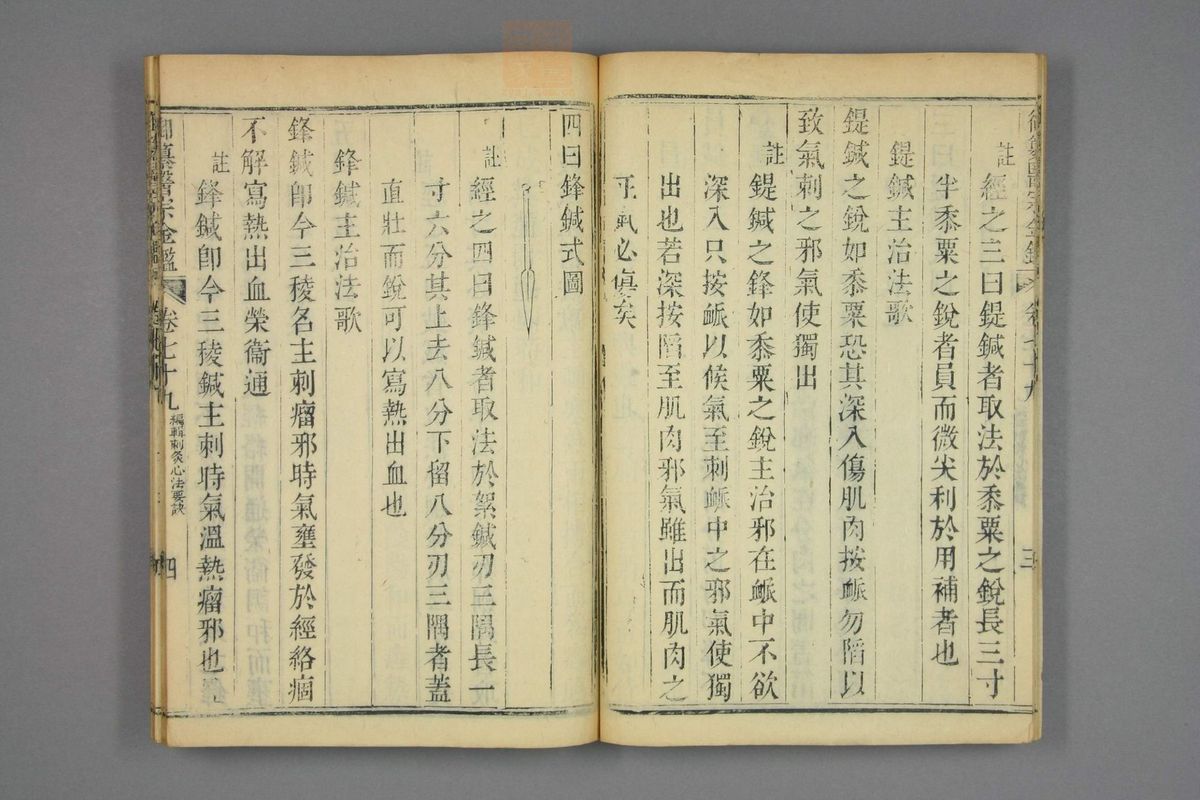 御纂醫宗金鑑
卷七十九
三
註經之三曰鍉鍼者取法於黍粟之銳長三寸
半黍粟之銳者員而微尖利於用補者也
鍉鍼主治法歌
鍉鍼之銳如黍粟恐其深入傷肌肉按䘑勿陷以
致氣刺之邪氣使獨出
註鍉鍼之鋒如黍粟之銳主治邪在䘑中不欲
深入只按䘑以候氣至刺䘑中之邪氣使獨
出也若深按陷至肌肉邪氣雖出而肌肉之
正氣必傷矣
四曰鋒鍼式圖
註經之四曰鋒鍼者取法於絮鍼刃三隅長一
寸六分其上去八分下留八分刃三隅者蓋
直壯而銳可以寫熱出血也
鋒鍼主治法歌
鋒鍼卽今三稜名主刺瘤邪時氣壅發於經絡痼
不解寫熱出血榮衞通
註鋒鍼卽今三稜鍼主刺時氣溫熱瘤邪也
御纂醫宗金鑑
卷七十九
編輯刺灸心法要訣
四